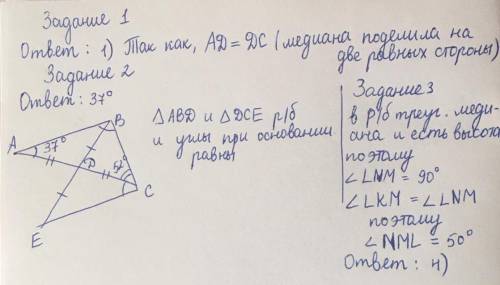 Задание 1
Ответ: 1) Так как, AD = DC (медиана поделила на две равных стороны)
Задание 2
Ответ: 37°
A
37°
B
D
57°
C
E
△ABD и △DCE р/б
и углы при основании
равны
Задание 3
в р/б треуг. меди-
ана и есть высота
поэтому
∠LNM = 90°
∠LKM = ∠LNM
поэтому
∠NML = 50°
Ответ: 4)